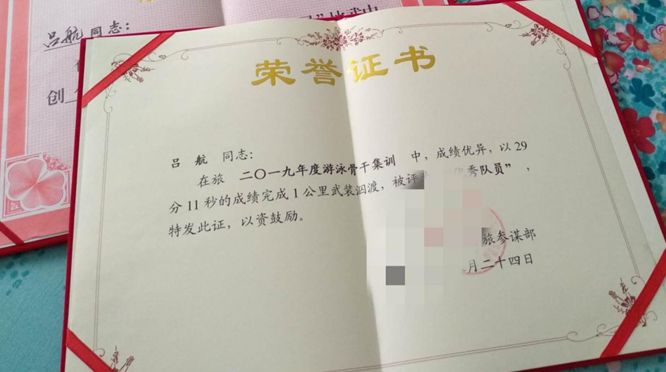 吕航同志：
创
荣誉证书
吕 航 同志：
在旅 二〇一九年度游泳骨干集训 中，成绩优异，以29
分11秒的成绩完成1公里武装泅渡，被评 秀队员”，
特发此证，以资鼓励。
旅参谋部
月二十四日